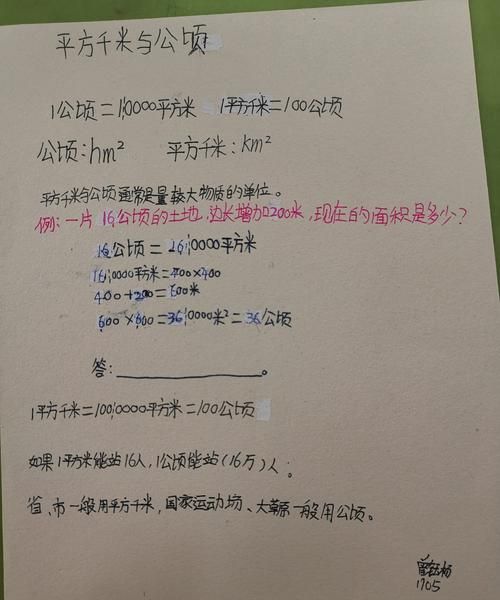 平方千米与公顷
1公顷=1,0000平方米 1平方千米=100公顷
公顷:hm² 平方千米:km²
平方千米与公顷通常是量较大物质的单位。
例:一片16公顷的土地,边长增加200米,现在的面积是多少?
16公顷=16,0000平方米
16,0000平方米=400×400
400+200=600米
600×600=36,0000米²=36公顷
答:____________。
1平方千米=100,0000平方米=100公顷
如果1平方米能站16人,1公顷能站(16万)人。
省、市一般用平方千米,国家运动场、大草原一般用公顷。
1705